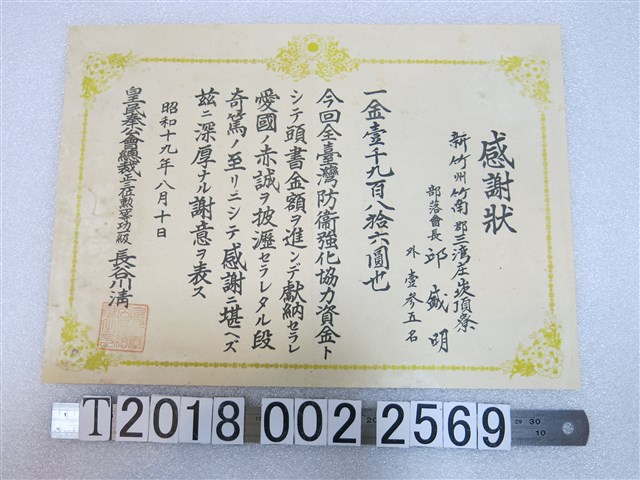 感謝狀
新竹州竹南郡三湾庄崁頂寮
部落會長 邱盛明
外壹參五名
一金壹千九百八拾六圓也
今回全臺灣防衞強化協力資金ト
シテ頭書金額ヲ進ンデ獻納セラレ
愛國ノ赤誠ヲ披瀝セラレタル段
奇篤ノ至リニシテ感謝ニ堪ヘズ
茲ニ深厚ナル謝意ヲ表ス
昭和十九年八月十日
皇民奉公會總裁正三位勲一等功級 長谷川清
T2018 002 2569